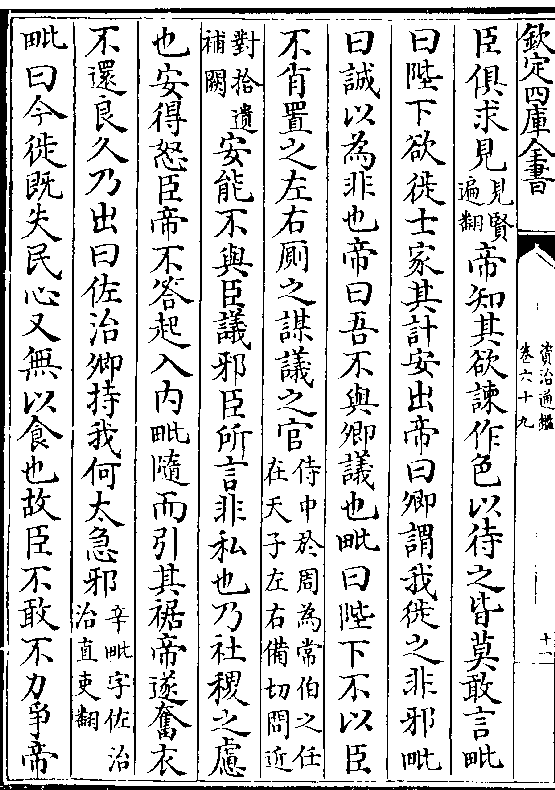 欽定四庫全書
資治通鑑
卷六十九
十一
臣俱求見見賢遍翻帝知其欲諫作色以待之皆莫敢言毗
曰陛下欲徙士家其計安出帝曰卿謂我徙之非邪毗
曰誠以為非也帝曰吾不與卿議也毗曰陛下不以臣
不肖置之左右厠之謀議之官侍中於周為常伯之任在天子左右備切問近
對拾遺補闕安能不與臣議邪臣所言非私也乃社稷之慮
也安得怒臣帝不答起入内毗隨而引其裾帝遂奮衣
不還良久乃出曰佐治卿持我何太急邪辛毗字佐治治直吏翻
毗曰今徙既失民心又無以食也故臣不敢不力爭帝